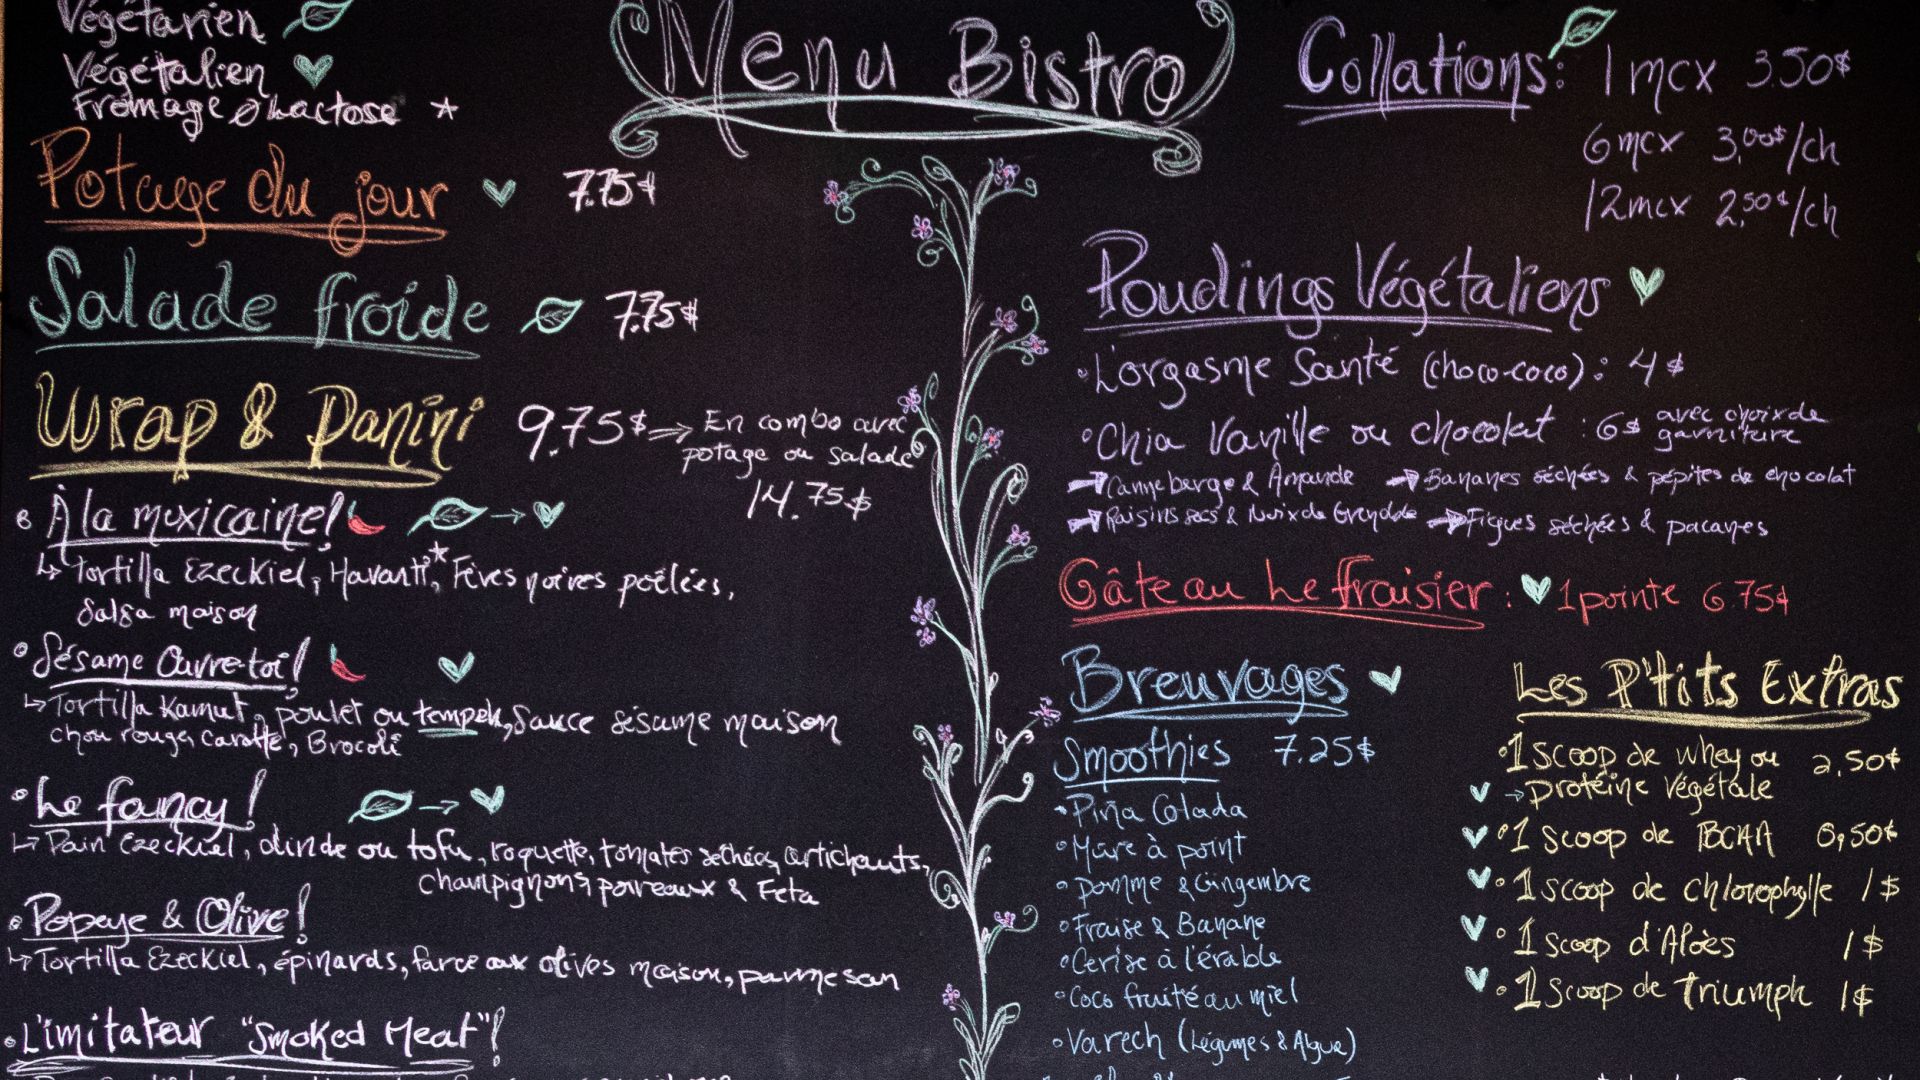 Végétarien
Végétalien
Fromage ø Lactose ★
Menu Bistro
Potage du jour 7.75$
Salade froide 7.75$
Wrap & Panini 9.75$ → En combo avec
potage ou salade
14.75$
• À la mexicaine! →
↳ Tortilla Ezeckiel, Havarti*, Fèves noires poêlées,
Salsa maison
• Sésame Ouvre-toi!
↳ Tortilla Kamut, poulet ou tempeh, Sauce sésame maison
chou rouge, carotte, Brocoli
• Le fancy! →
↳ Pain Ezeckiel, dinde ou tofu, roquette, tomates séchées, artichauts,
champignons, poireaux & Feta
• Popeye & Olive!
↳ Tortilla Ezeckiel, épinards, farce aux olives maison, parmesan
• L'imitateur "Smoked Meat"!
Collations: 1 mcx 3.50$
6 mcx 3,00$/ch
12 mcx 2,50$/ch
Poudings Végétaliens
• L'orgasme Santé (choco-coco): 4$
• Chia Vanille ou chocolat : 6$ avec choix de
garniture
→ Canneberge & Amande → Bananes séchées & pépites de chocolat
→ Raisins secs & Noix de Grenoble → Figues séchées & pacanes
Gâteau Le fraisier : 1 pointe 6.75$
Breuvages
Smoothies 7.25$
• Piña Colada
• Mûre à point
• Pomme & Gingembre
• Fraise & Banane
• Cerise à l'érable
• Coco fruité au miel
• Varech (Légumes & Algue)
Les P'tits Extras
• 1 scoop de whey ou 2,50$
→ protéine végétale
• 1 scoop de BCAA 0,50$
• 1 scoop de chlorophylle 1$
• 1 scoop d'Aloès 1$
• 1 scoop de Triumph 1$